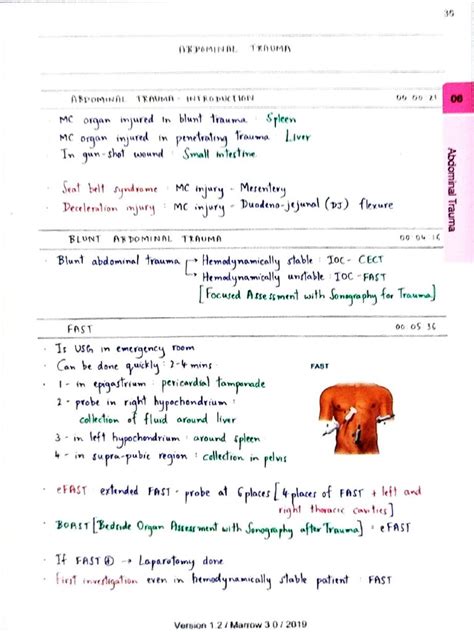 35
ABDOMINAL TRAUMA
ABDOMINAL TRAUMA - INTRODUCTION 00 00 21
06
Abdominal Trauma
· MC organ injured in blunt trauma : Spleen
MC organ injured in penetrating trauma Liver
· In gun-shot wound : Small intestine
· Seat belt syndrome : MC injury - Mesentery
· Deceleration injury : MC injury - Duodeno-jejunal (DJ) flexure
BLUNT ABDOMINAL TRAUMA 00 04 16
· Blunt abdominal trauma → Hemodynamically stable : IOC - CECT
→ Hemodynamically unstable : IOC - FAST
[Focused Assessment with Sonography for Trauma]
FAST 00 05 36
· Is USG in emergency room
· Can be done quickly : 2-4 mins
FAST
· 1 - in epigastrium : pericardial tamponade
2 - probe in right hypochondrium :
collection of fluid around liver
3 - in left hypochondrium : around spleen
4 - in supra-pubic region : collection in pelvis
· eFAST extended FAST - probe at 6 places [4 places of FAST + left and
right thoracic cavities]
· BOAST [Bedside Organ Assessment with Sonography after Trauma] = eFAST
· If FAST ⊕ → Laparotomy done
· First investigation even in hemodynamically stable patient : FAST
Version 1.2 / Marrow 3.0 / 2019